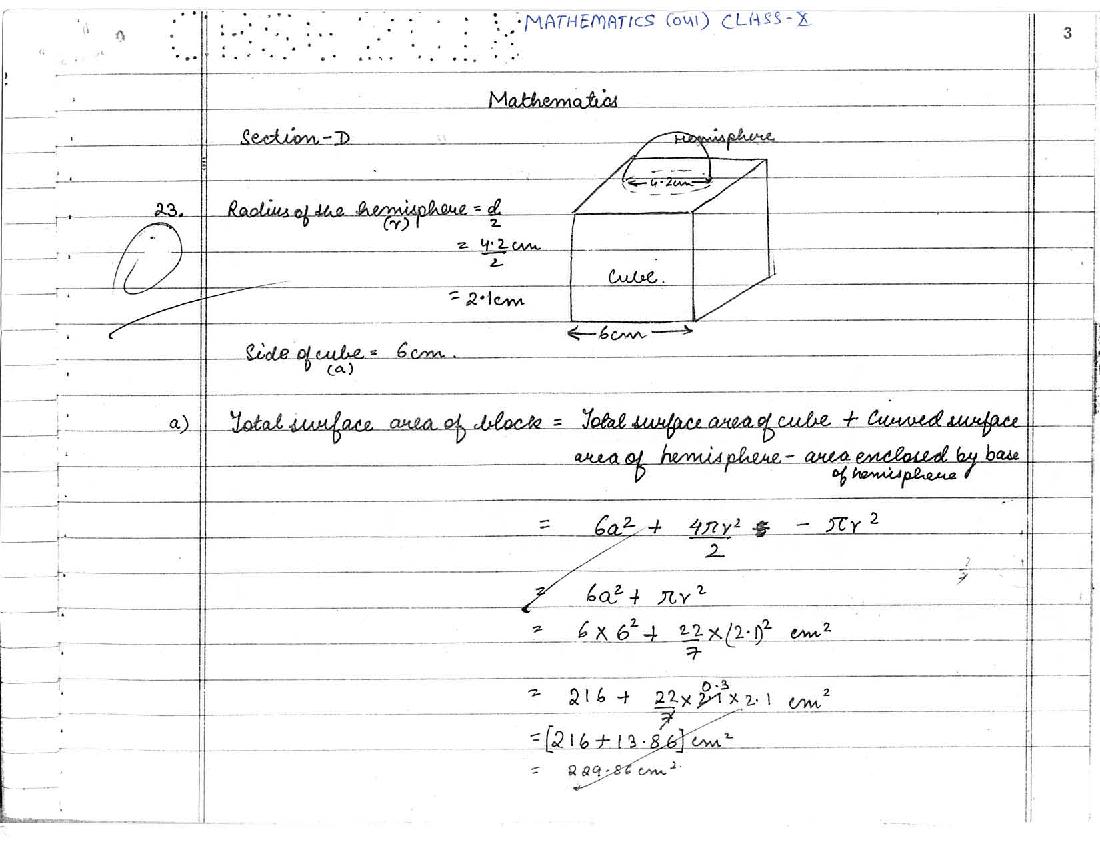 MATHEMATICS (041) CLASS-X
CBSE 2018
3
Mathematics
Section-D
Hemisphere
4.2cm
23. Radius of the hemisphere = d/2
(r)
= 4.2 cm/2
Cube.
= 2.1cm
6cm
Side of cube = 6cm.
(a)
a) Total surface area of block = Total surface area of cube + Curved surface
area of hemisphere - area enclosed by base
of hemisphere
= 6a² + 4πr²/2 - πr²
= 6a² + πr²
= 6 x 6² + 22/7 x (2.1)² cm²
= 216 + 22/7 x 2.1 x 2.1 cm²
0.3
= [216 + 13.86] cm²
= 229.86 cm²